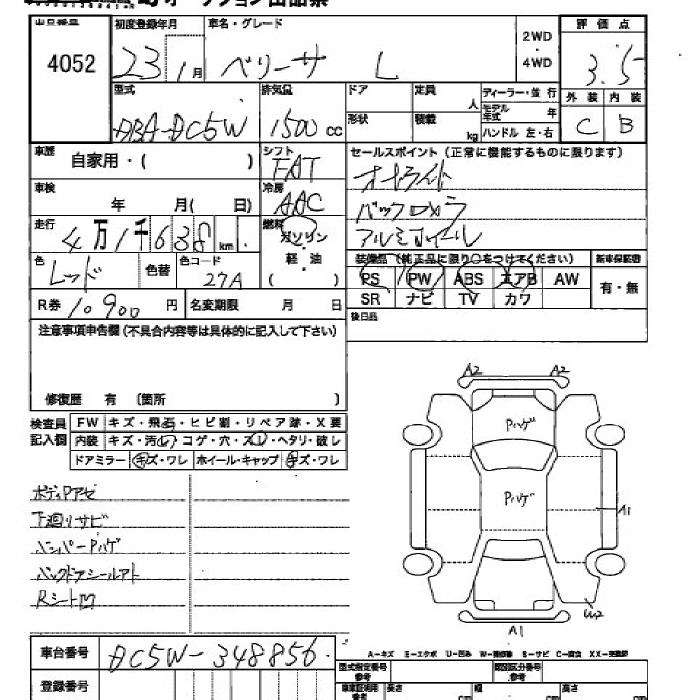 オークション出品票
出品番号 初度登録年月 車名・グレード 2WD・4WD 評価点
4052 23 1月 ベリーサ L 3.5
型式 排気量 ドア 定員 人 ディーラー・並行 外装 内装
DBA-DC5W 1500cc 形状 積載 kg モデル年式 年 ハンドル 左・右 C B
車歴 自家用・( ) シフト FAT セールスポイント (正常に機能するものに限ります)
車検 年 月( 日) 冷房 AAC オートライト
バックカメラ
走行 4万1千638km 燃料 ガソリン・軽・油 ( ) アルミホイール
色 レッド 色替 色コード 27A 装備品(純正品に限り○をつけてください) 新車保証書
PS PW ABS エアB AW 有・無
SR ナビ TV カワ
R券 10,900円 名変期限 月 日 後日品
注意事項申告欄(不具合内容等は具体的に記入して下さい)
修復歴 有 〔箇所 〕
検査員記入欄 FW キズ・飛石・ヒビ割・リペア跡・X要
内装 キズ・汚レ・コゲ・穴・スレ・ヘタリ・破レ
ドアミラー キズ・ワレ ホイール・キャップ キズ・ワレ
A2 A2
Pハゲ
Pハゲ
A1
A1
ボディPアセ
下廻りサビ
バンパーPハゲ
バックドアシールアト
Rシート凹
車台番号 DC5W-348856
A-キズ E-エクボ U-凹み W-補修跡 S-サビ C-腐食 XX-交換跡
登録番号
型式指定番号 類別区分番号
参考
車庫証明用参考 長さ cm 幅 cm 高さ cm